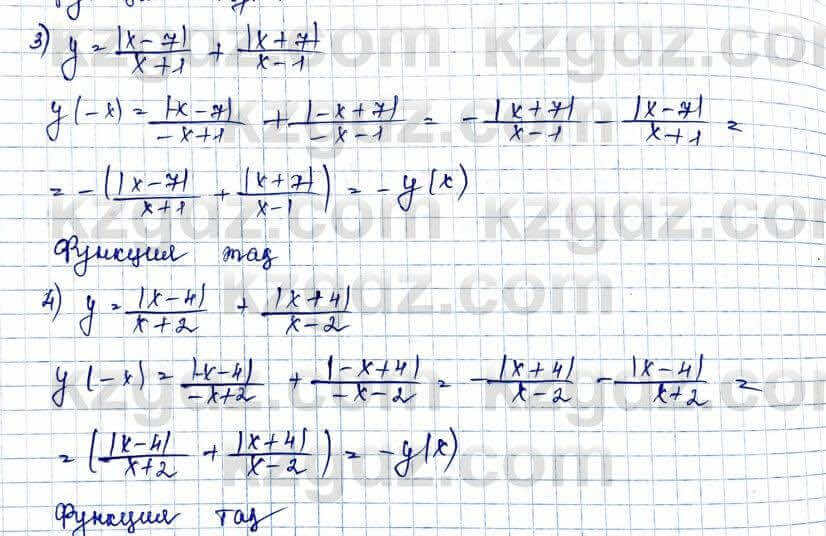 3) y = |x-7|/x+1 + |x+7|/x-1
y(-x) = |-x-7|/-x+1 + |-x+7|/-x-1 = -|x+7|/x-1 - |x-7|/x+1 =
= -(|x-7|/x+1 + |x+7|/x-1) = -y(x)
Функция тад
4) y = |x-4|/x+2 + |x+4|/x-2
y(-x) = |-x-4|/-x+2 + |-x+4|/-x-2 = -|x+4|/x-2 - |x-4|/x+2 =
= (|x-4|/x+2 + |x+4|/x-2) = -y(x)
Функция тад
kzgdz.com